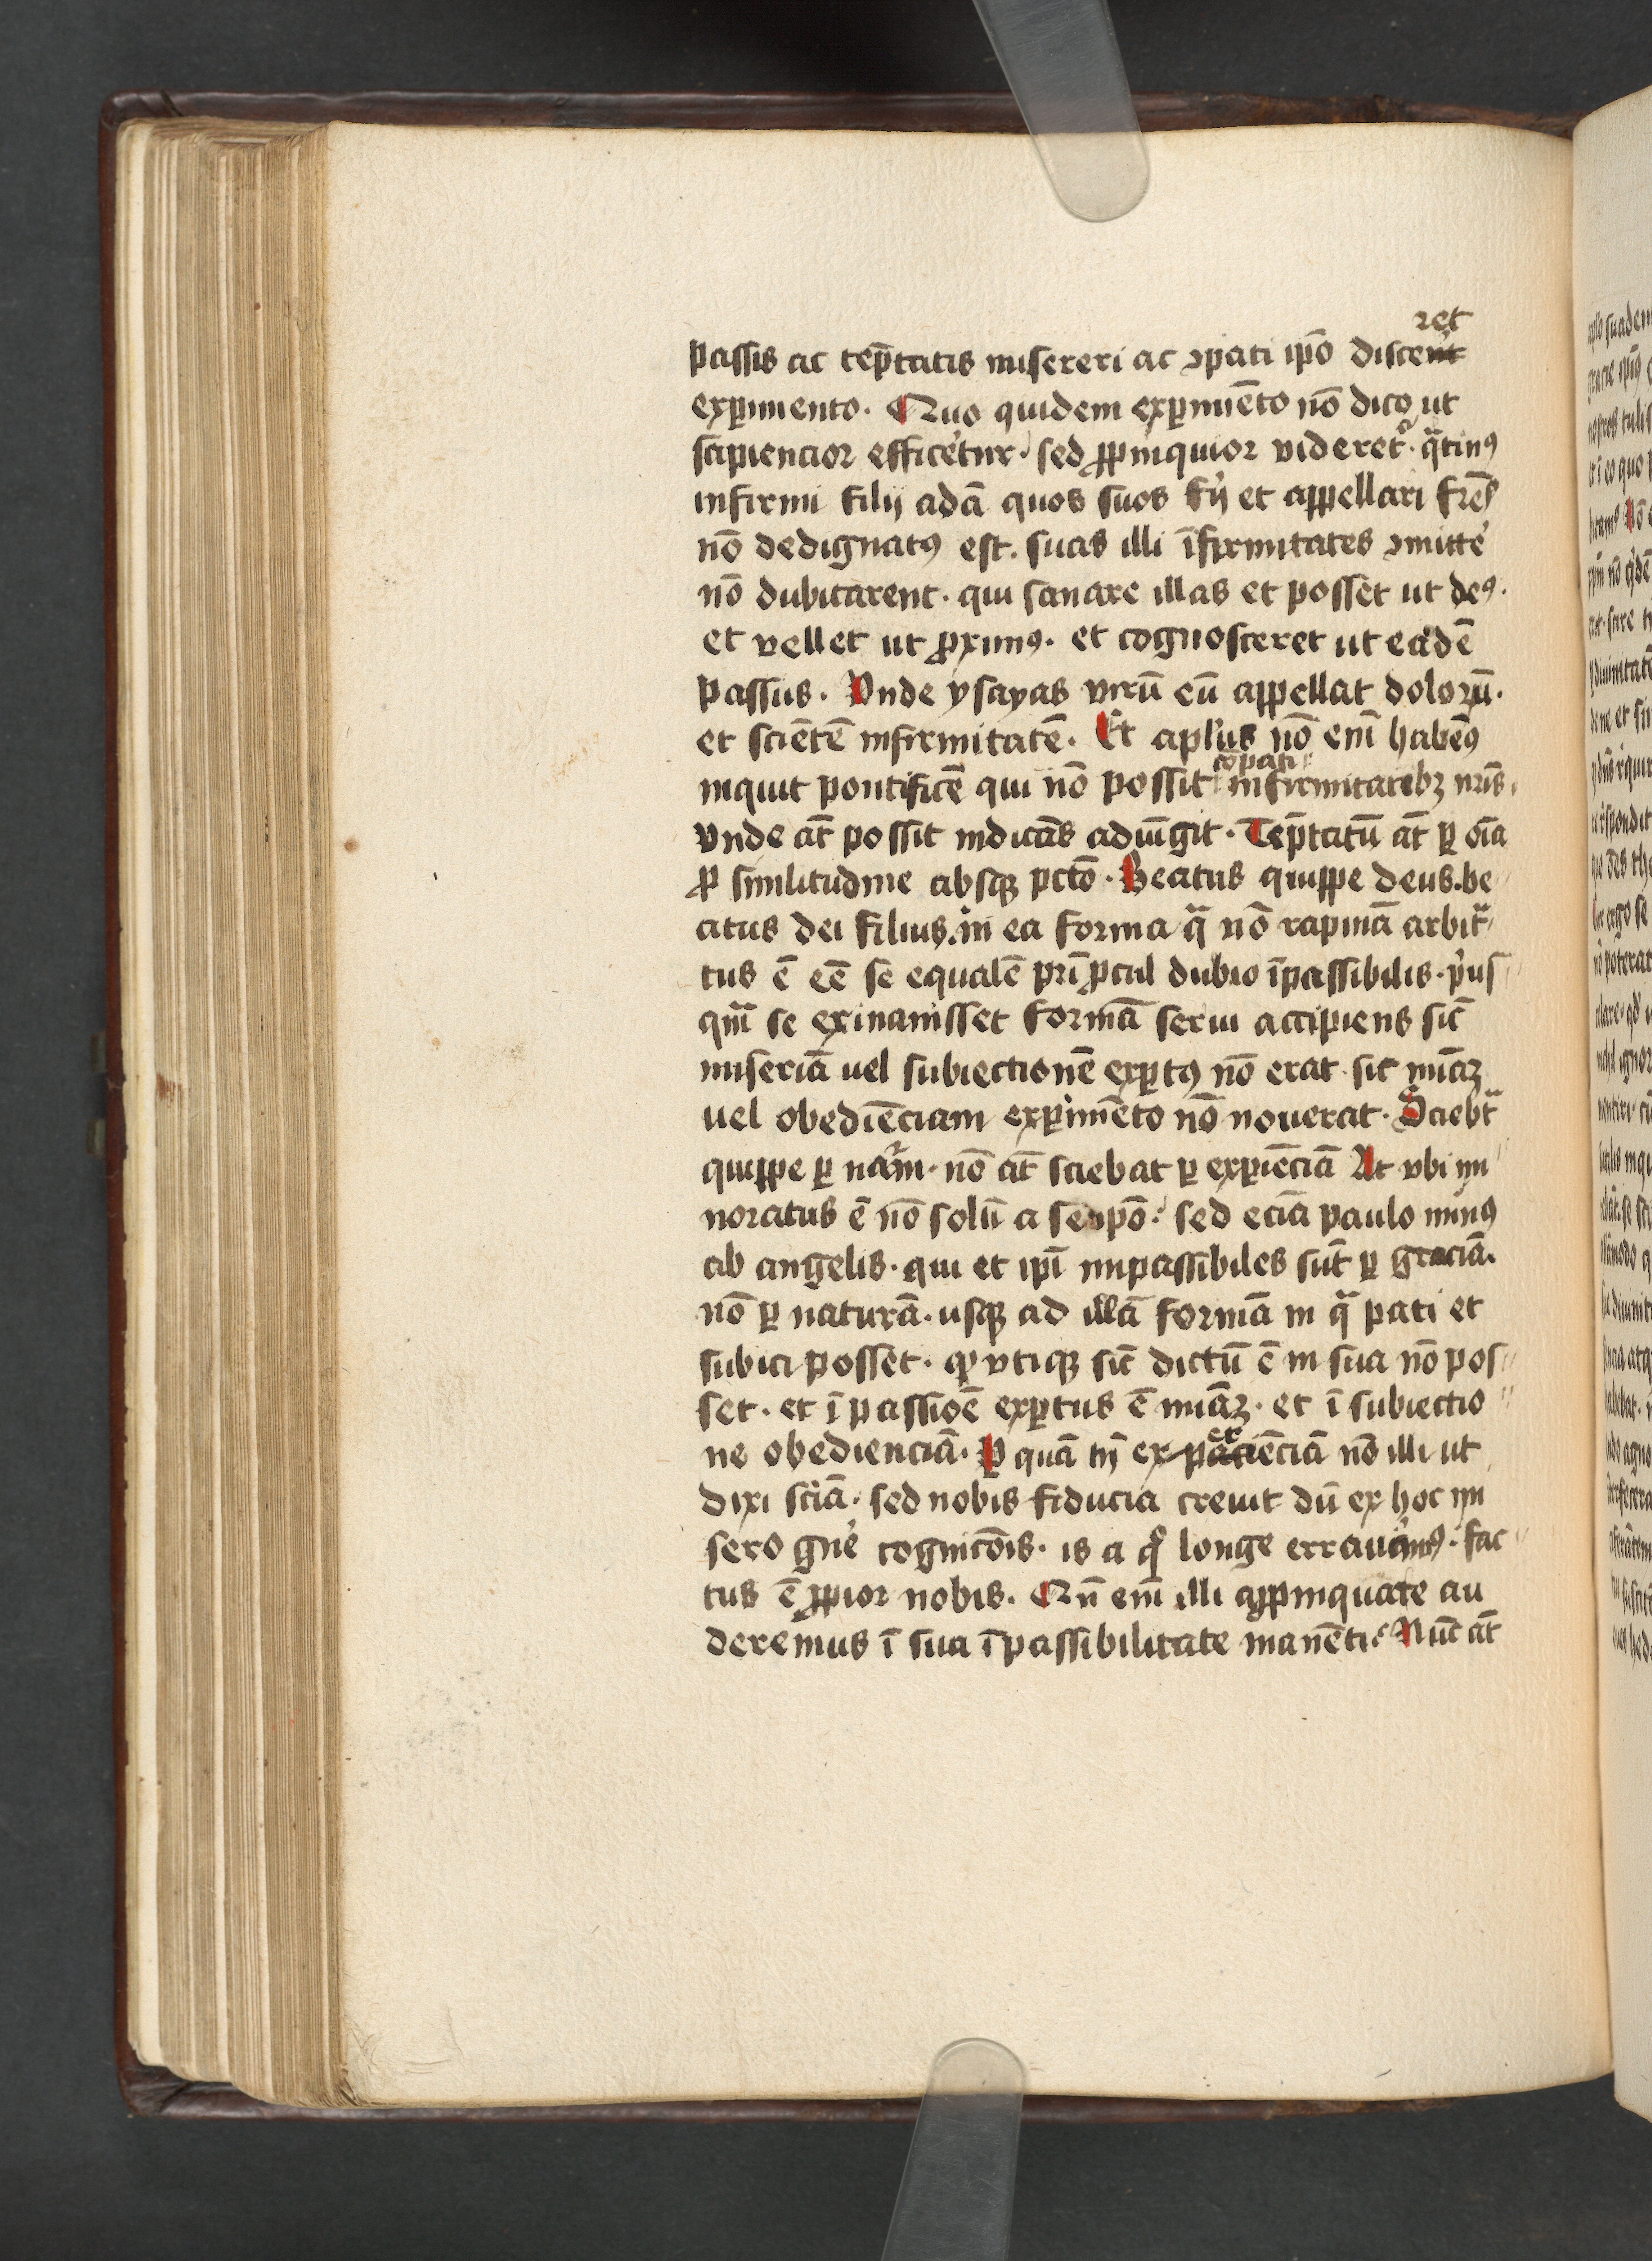 ret
passis ac tēp̄tatis misereri ac ꝯpati ip̄o discent
exꝑimento. Quo quidem exꝑimēto nō dico ut
sapiencior efficet᷑ur. sed ꝓpinquior videret᷑. qᷓtinꝰ
infirmi filij adā quos suos fꝫi et appellari fr̄es
nō dedignatꝰ est. suas illi īfirmitates ꝯmitte᷑
nō dubitarent. qui sanare illas et posset ut deꝰ.
et vellet ut ꝓximꝰ. et cognosceret ut eadē
passus. Vnde ysayas virū eū appellat dolorū.
et sciētē infirmitatē. Et apl'us nō enī habemꝰ
cōpati
inquit pontificē qui nō possit infirmitatibꝫ nr̄is.
vnde at̄ possit indicās adiūgit. Tēp̄tatū at̄ ꝑ oīa
ꝓ similitudine absqꝫ pctō. Beatus quippe deus. be
atus dei filius. in ea forma qᷓ nō rapinā arbitᷓ
tus ē eē se equalē pr̄i ꝓcul dubio īpassibilis. pⁱus
qm̄ se exinanisset formā serui accipiens sic̄
miseriā uel subiectionē exꝑtꝰ nō erat. sic mīāꝫ
uel obediēciam exꝑimēto nō nouerat. Sciebᷓt
quippe ꝑ nat᷑am. nō at̄ sciebat ꝑ exꝑiēciā At vbi mi
noratus ē nō solū a seipō. sed eciā paulo minꝰ
ab angelis. qui et ipī impassibiles sūt ꝑ graciā.
nō ꝑ naturā. usqꝫ ad illā formā in qᷓ pati et
subici posset. qꝫ vtiqꝫ sic̄ dictū ē in sua nō pos
set. et ī passiōe exꝑtus ē mīāꝫ. et ī subiectio
ne obedienciā. Ꝑ quā tn̄ exꝑiēciā nō illi ut
dixi sciā. sed nobis fiducia creuit dū ex hoc mi
sero gn̄e᷑ cognicōis. is a qͦ longe errauimꝰ. fac
tus ē ꝓpior nobis. Qn̄ enī illi appinquare au
deremus ī sua īpassibilitate manēti? Nūc at̄